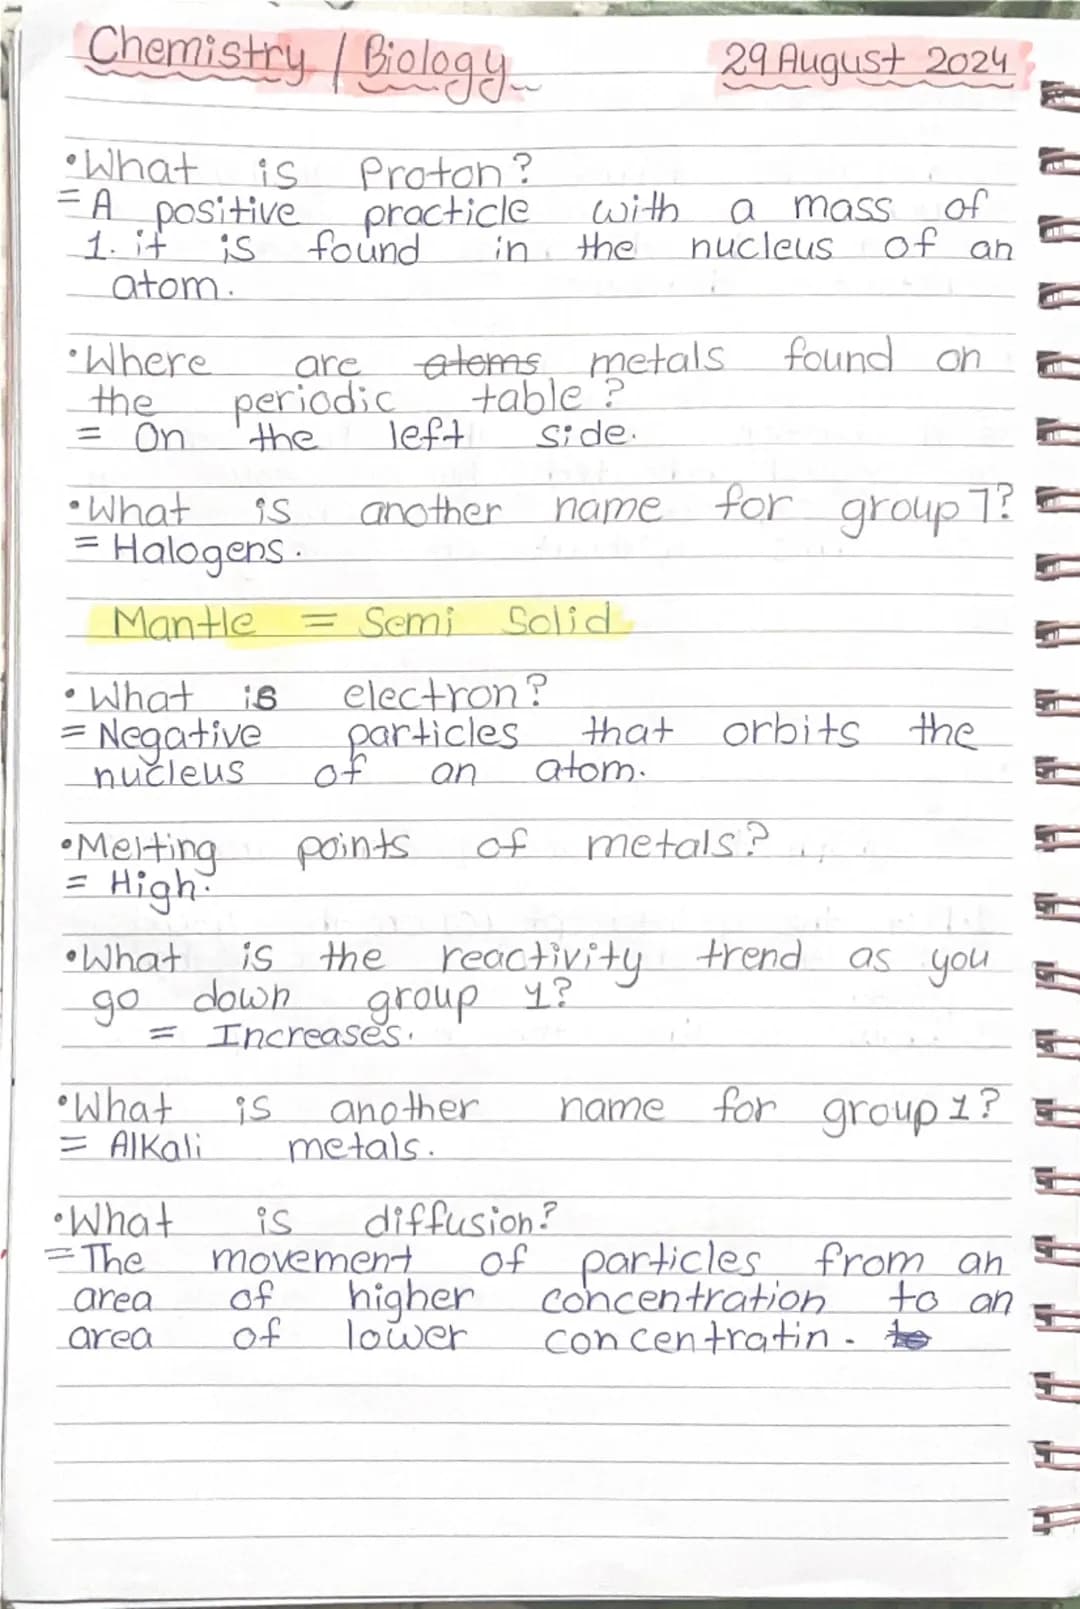 Chemistry / Biology 29 August 2024
•What is Proton?
= A positive practicle with a mass of
1. it is found in the nucleus of an
atom.
•Where are atoms metals found on
the periodic table?
= On the left side.
•What is another name for group 7?
= Halogens.
Mantle = Semi Solid
•What is electron?
= Negative particles that orbits the
nucleus of an atom.
•Melting points of metals?
= High.
•What is the reactivity trend as you
go down group 1?
= Increases.
•What is another name for group 1?
= Alkali metals.
•What is diffusion?
= The movement of particles from an
area of higher concentration to an
area of lower concentratin. to